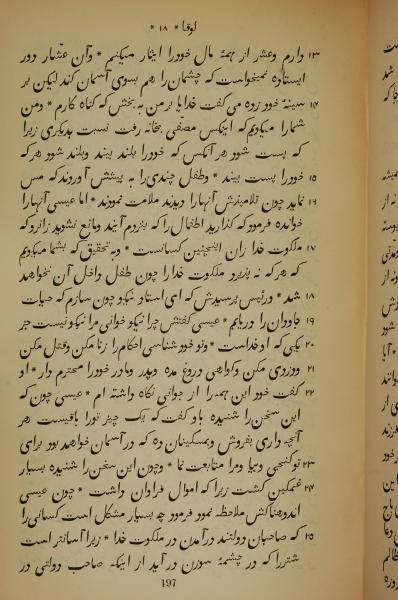 لوقا * ۱۸ *
۱۳ دارم وعشر از همهٔ مال خودرا ایثار میکنیم * وآن عشّار دور
ایستاده نمیخواست که چشمان را هم بسوی آسمان کند لیکن بر
سینهٔ خود زده می گفت خدایا بر من به بخش که گناه کارم * ومن ۱۴
شمارا میگویم که اینکس مصفّی بخانه رفت نسبت بدیگری زیرا
که پست شود هر آنکس که خودرا بلند بیند وبلند شود هر که
۱۵ خودرا پست بیند * وطفل چندی را به پیشش آوردند که مس
۱۶ نماید چون تلامیذش آنهارا دیدند ملامت نمودند * اما عیسی آنهارا
خوانده فرمود که گذارید اطفال را که بنزدم آیند ومانع نشوید زانرو که
۱۷ ملکوت خدا زان اینچنین کسانست * وبه تحقیق که بشما میگویم
که هر که نه پذیرد ملکوت خدارا چون طفل داخل آن نخواهد
۱۸ شد * ورئیس پرسیدش که ای استاد نیکو چون سازم که حیات
۱۹ جاودان را دریابم * عیسی گفتش چرا نیکو خوانی مرا نیکو نیست جز
۲۰ یکی که او خداست * وتو خود شناسی احکام را زنا مکن وقتل مکن
۲۱ ودزدی مکن وگواهی دروغ مده وپدر ومادر خودرا محترم دار * او
۲۲ گفت خود این همه را از جوانی نگاه داشته ام * عیسی چون که
این سخن را شنیده باو گفت که یک چیز تورا باقیست هر
آنچه داری بفروش وبمسکینان ده که در آسمان خواهد بود برای
۲۳ تو گنجی وبیا ومرا متابعت نما * وچون این سخن را شنیده بسیار
۲۴ غمگین گشت زیرا که اموال فراوان داشت * چون عیسی
اندوهناکش ملاحظه نمود فرمود چه بسیار مشکل است کسانی را
۲۵ که صاحبان دولتند در آمدن در ملکوت خدا * زیرا آسانتر است
شتر را که در چشمهٔ سوزن در آید از اینکه صاحب دولتی در
197